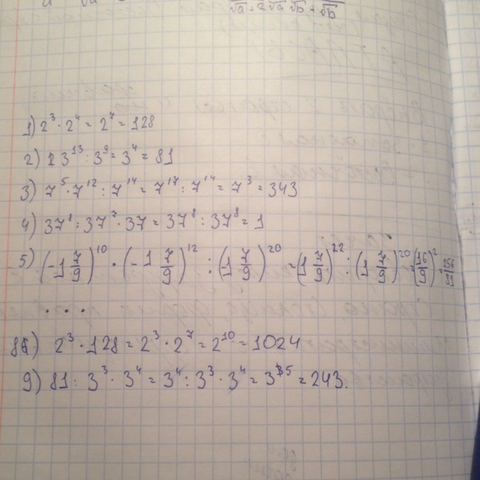 √a + 2√a √b + √b
1) 2³ · 2⁴ = 2⁷ = 128
2) 3¹³ : 3⁹ = 3⁴ = 81
3) 7⁵ · 7¹² : 7¹⁴ = 7¹⁷ : 7¹⁴ = 7³ = 343
4) 37⁸ : 37⁷ · 37 = 37⁸ : 37⁸ = 1
5) (-1 7/9)¹⁰ · (-1 7/9)¹² : (1 7/9)²⁰ = (1 7/9)²² : (1 7/9)²⁰ = (16/9)² = 256/81
. . .
8) 2³ · 128 = 2³ · 2⁷ = 2¹⁰ = 1024
9) 81 : 3³ · 3⁴ = 3⁴ : 3³ · 3⁴ = 3⁵ = 243.